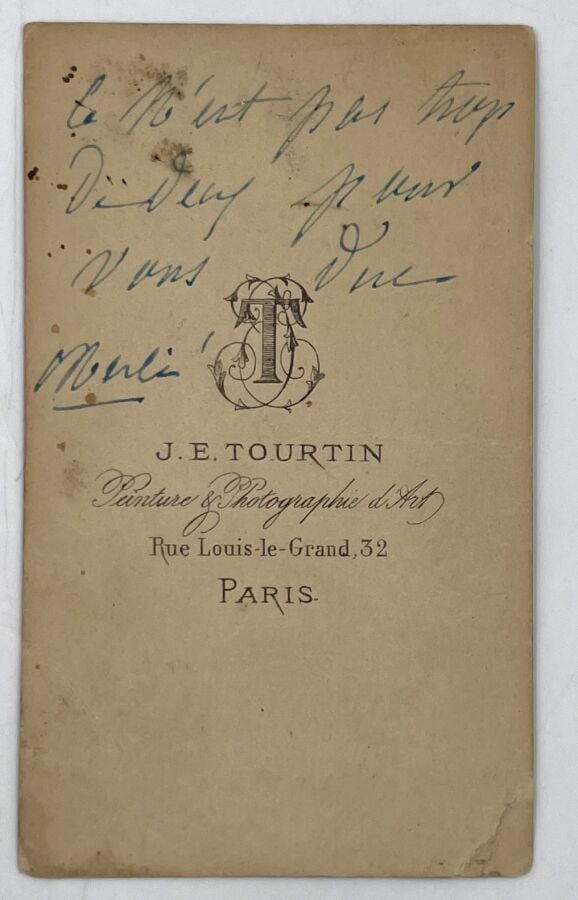 Ce N'est pas trop
De Deux pour
Vous Duc
J. E. TOURTIN
Peinture & Photographie d'Art
Rue Louis-le-Grand, 32
PARIS.